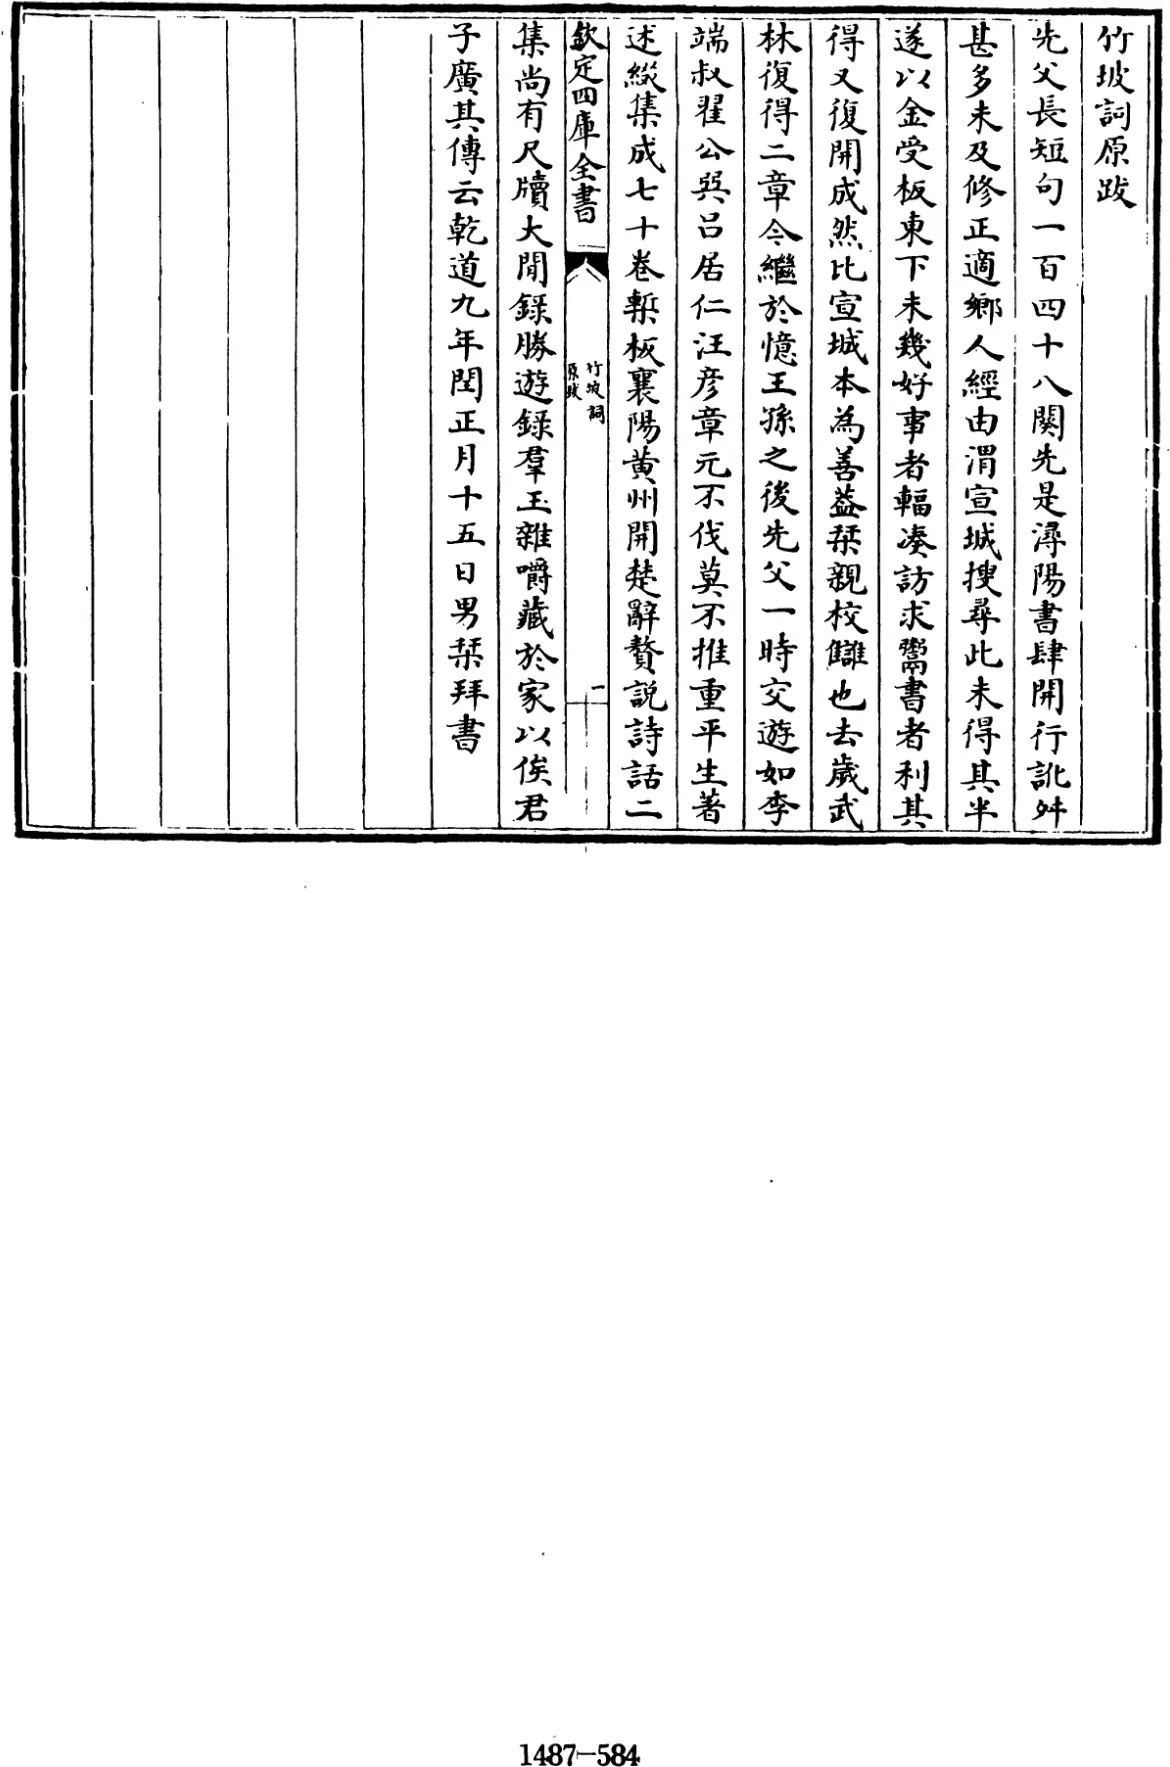 竹坡詞原跋
先父長短句一百四十八闋先是潯陽書肆開行訛舛
甚多未及修正適鄉人經由渭宣城搜尋此未得其半
遂以金受板東下未幾好事者輻湊訪求鬻書者利其
得又復開成然比宣城本為善蓋栞親校讎也去歲武
林復得二章令繼於憶王孫之後先父一時交遊如李
端叔翟公㢲呂居仁汪彦章元不伐莫不推重平生著
述縱集成七十卷槧板襄陽黃州開楚辭贅說詩話二
欽定四庫全書
竹坡詞
原跋
一
集尚有尺牘大閒錄勝遊錄羣玉雜嚼藏於家以俟君
子廣其傳云乾道九年閏正月十五日男栞拜書
1487-584